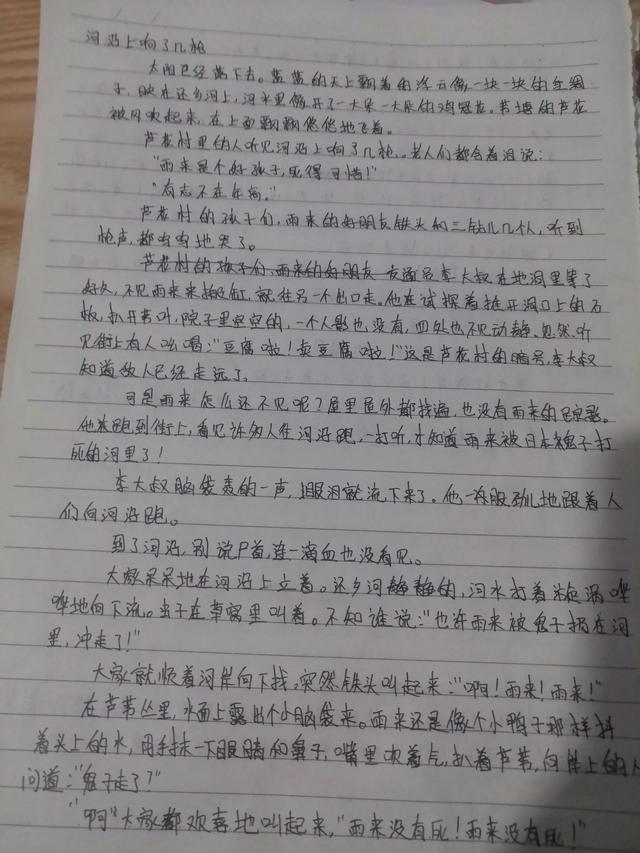 河沿上响了几枪
太阳已经落下去。蓝蓝的天上飘着的浮云像一块一块的红绸
子，映在还乡河上，河水里像开了一大朵一大朵的鸡冠花。苇塘的芦花
被风吹起来，在上面飘飘悠悠地飞着。
芦花村里的人听见河沿上响了几枪。老人们都含着泪说：
“雨来是个好孩子，死得可惜！”
“有志不在年高。”
芦花村的孩子们，雨来的好朋友铁头和三钻儿几个人，听到
枪声，都呜呜地哭了。
芦花村的孩子们，雨来的好朋友 交通员李大叔在地洞里等了
好久，不见雨来来搬缸，就往另一个出口走。他在试探着推开洞口上的石
板，扒开苇叶，院子里空空的，一个人影也没有，四处也不见动静。忽然，听
见街上有人吆喝：“豆腐啦！卖豆腐啦！”这是芦花村的暗号，李大叔
知道敌人已经走远了。
可是雨来怎么还不见呢？屋里屋外都找遍，也没有雨来的踪影。
他跑到街上，看见许多人往河沿跑，一打听，才知道雨来被日本鬼子打
死的河里了！
李大叔脑袋轰的一声，眼泪就流下来了。他一股劲儿地跟着人
们向河沿跑。
到了河沿，别说尸首，连一滴血也没看见。
大家呆呆地在河沿上立着。还乡河静静的，河水打着漩涡哗
哗地向下流。虫子在草窝里叫着。不知谁说：“也许雨来被鬼子扔在河
里，冲走了！”
大家就顺着河岸向下找，突然铁头叫起来：“啊！雨来！雨来！”
在芦苇丛里，水面上露出个小脑袋来。雨来还是像个小鸭子那样抖
着头上的水，用手抹一下眼睛和鼻子，嘴里吹着气，扒着芦苇，向岸上的人
问道：“鬼子走了？”
“啊”大家都欢喜地叫起来，“雨来没有死！雨来没有死！”